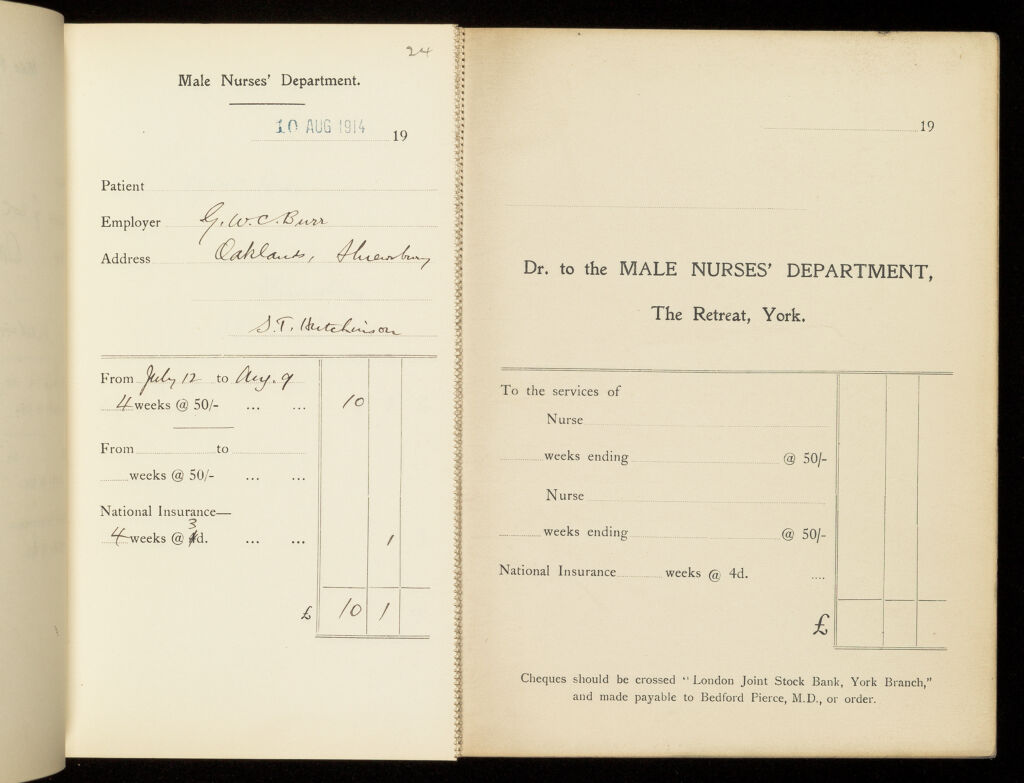 24
Male Nurses' Department.
10 AUG 1914 19
Patient
Employer G. W. C. Burr
Address Oaklands, Shrewsbury
S. T. Hutchinson
From July 12 to Aug. 9
4 weeks @ 50/- ... ... 10
From to
weeks @ 50/- ... ...
National Insurance—
3
4 weeks @ 4d. ... ... 1
£ 10 1
19
Dr. to the MALE NURSES' DEPARTMENT,
The Retreat, York.
To the services of
Nurse
weeks ending @ 50/-
Nurse
weeks ending @ 50/-
National Insurance weeks @ 4d. ....
£
Cheques should be crossed "London Joint Stock Bank, York Branch,"
and made payable to Bedford Pierce, M.D., or order.